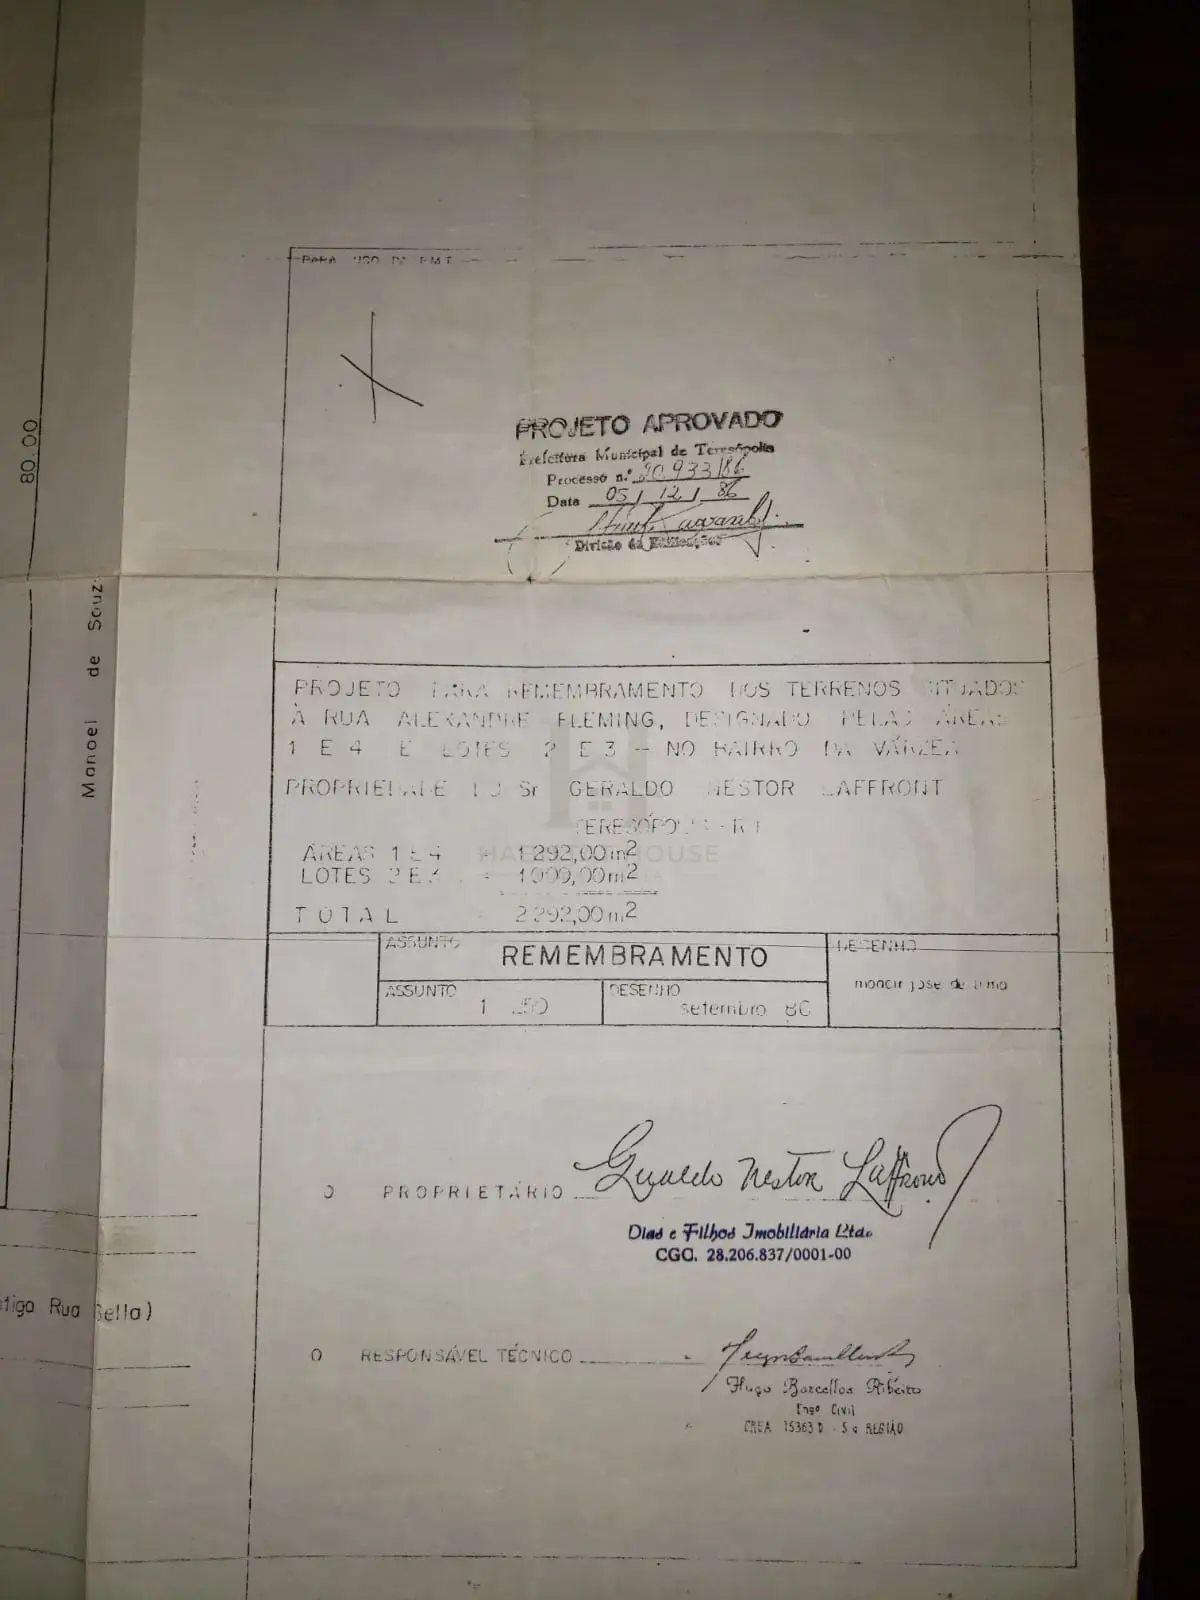 80.00
Manoel de Souz
PARA USO DA P.M.T.
PROJETO APROVADO
Prefeitura Municipal de Teresópolis
Processo n.º 20.933/86
Data 05/12/86
Divisão de Edificações
PROJETO PARA REMEMBRAMENTO DOS TERRENOS SITUADOS
À RUA ALEXANDRE FLEMING, DESIGNADO PELAS ÁREAS
1 E 4 E LOTES 2 E 3 - NO BAIRRO DA VÁRZEA
PROPRIEDADE DO Sr GERALDO NESTOR LAFFRONT
TERESÓPOLIS - RJ
ÁREAS 1 E 4 = 1.292,00 m2
LOTES 2 E 3 = 1.000,00 m2
TOTAL 2.292,00 m2
HABITAT HOUSE
ASSUNTO
REMEMBRAMENTO
DESENHO
moacir jose de lima
ASSUNTO
1 250
DESENHO
setembro 86
O PROPRIETÁRIO Geraldo Nestor Laffront
Dias e Filhos Imobiliária Ltda.
CGC. 28.206.837/0001-00
tiga Rua Bella)
O RESPONSÁVEL TÉCNICO
Hugo Barcellos Ribeiro
Engo Civil
CREA 15363 D - 5a REGIÃO